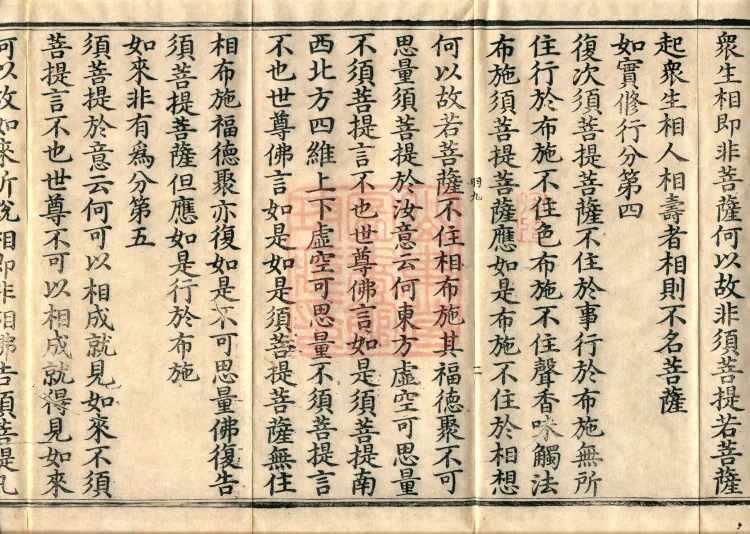 衆生相即非菩薩何以故非須菩提若菩薩
起衆生相人相壽者相則不名菩薩
如實修行分第四
復次須菩提菩薩不住於事行於布施無所
住行於布施不住色布施不住聲香味觸法
布施須菩提菩薩應如是布施不住於相想
羽九
二
何以故若菩薩不住相布施其福德聚不可
思量須菩提於汝意云何東方虛空可思量
不須菩提言不也世尊佛言如是須菩提南
西北方四維上下虛空可思量不須菩提言
不也世尊佛言如是如是須菩提菩薩無住
相布施福德聚亦復如是不可思量佛復告
須菩提菩薩但應如是行於布施
如來非有爲分第五
須菩提於意云何可以相成就見如來不須
菩提言不也世尊不可以相成就得見如來
何以故如來所說相即非相佛告須菩提凡